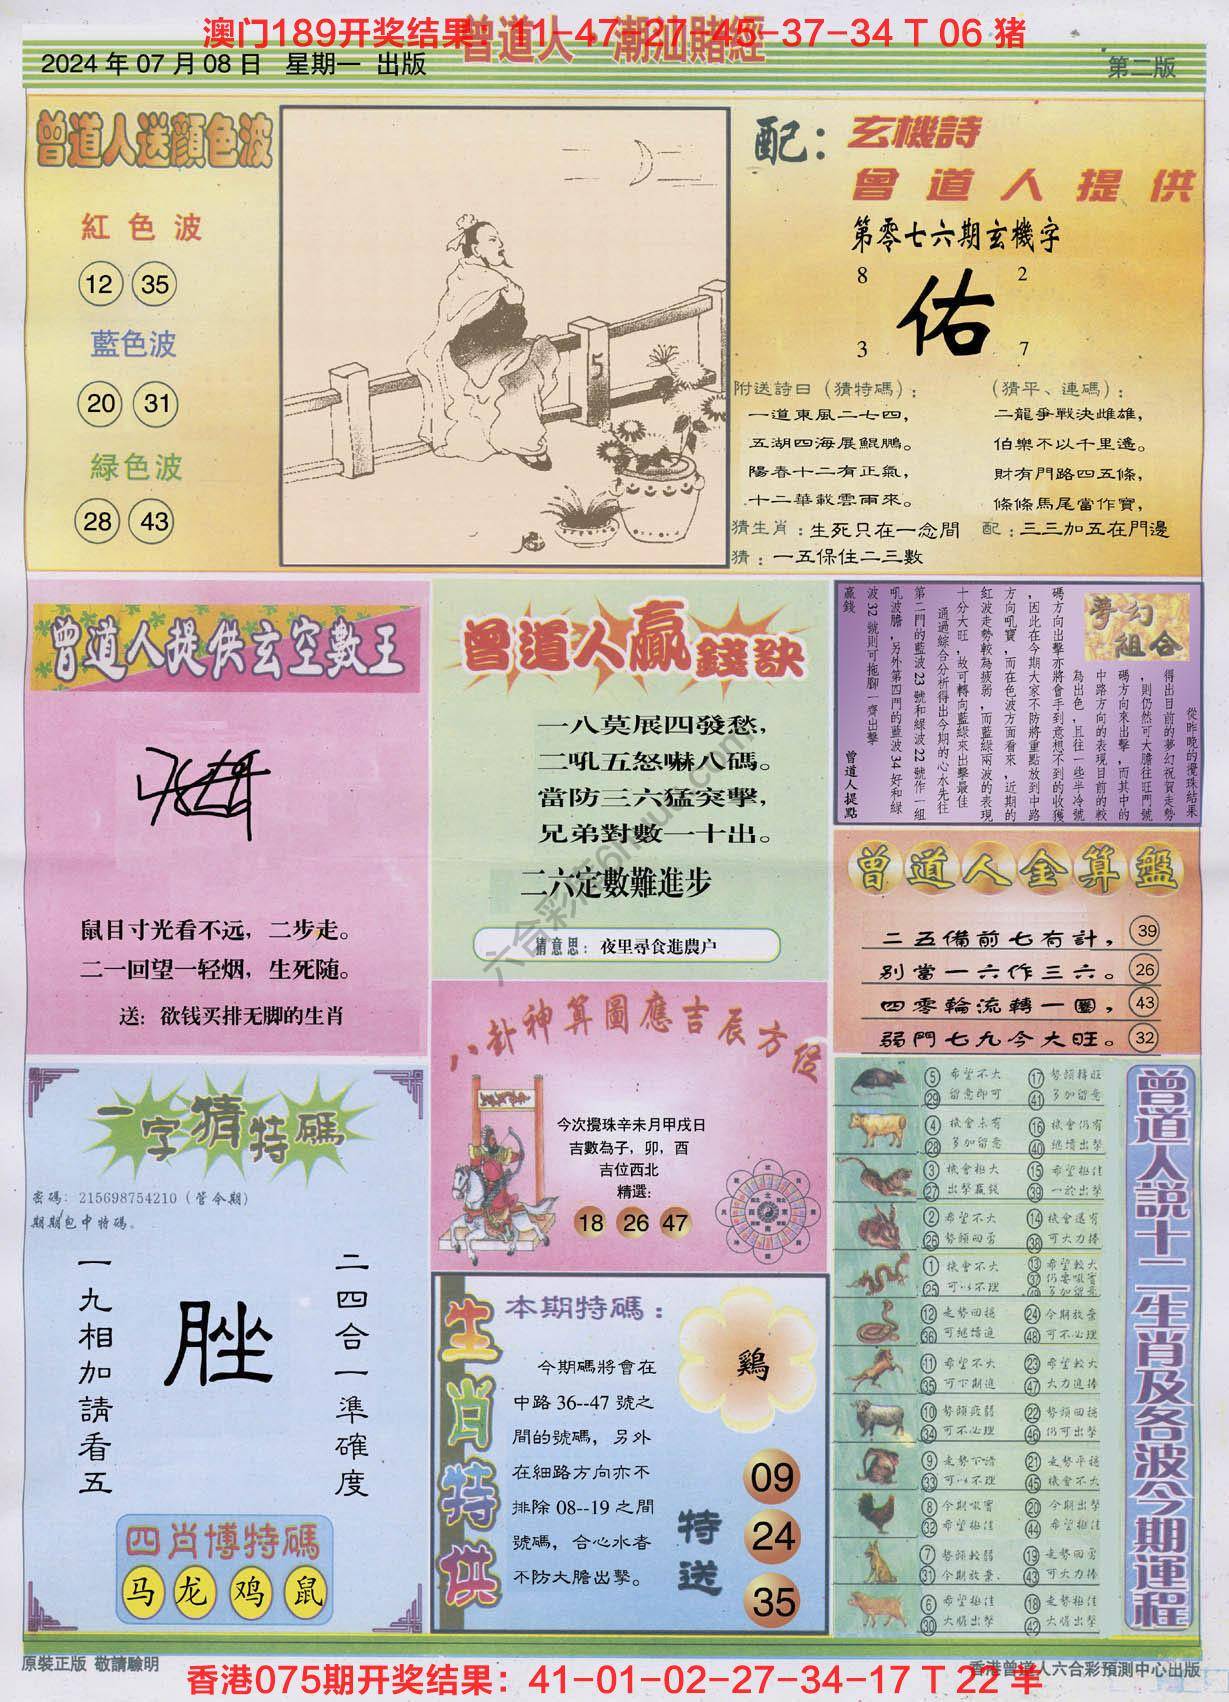 澳门189开奖结果：11-47-27-45-37-34 T 06 猪
曾道人·潮汕賭經
2024 年 07 月 08 日 星期一 出版
第二版
曾道人送顏色波
紅色波
12 35
藍色波
20 31
緑色波
28 43
5
配：
玄機詩
曾道人提供
第零七六期玄機字
8 2
佑
3 7
附送詩曰（猜特碼）：
一道東風二七四，
五湖四海展鯤鵬。
陽春十二有正氣，
十二華載雲雨來。
（猜平、連碼）：
二龍爭戰決雌雄，
伯樂不以千里遙。
財有門路四五條，
條條馬尾當作寶，
猜生肖：生死只在一念間
配：三三加五在門邊
猜：一五保住二三數
曾道人提供玄空數王
鼠目寸光看不远，二步走。
二一回望一轻烟，生死随。
送：欲钱买排无脚的生肖
曾道人贏錢訣
一八莫展四發愁，
二吼五怒嚇八碼。
當防三六猛突擊，
兄弟對數一十出。
二六定數難進步
猜意思：夜里尋食進農户
夢幻組合
從昨晚的攪珠結果
得出目前的夢幻祝賀走勢
，則仍然可大膽往旺門號
碼方向來出擊，而其中的
中路方向的表現目前的較
為出色，且往一些半冷號
碼方向出擊亦將會手到意想不到的收獲
，因此在今期大家不防將重點放到中路
方向吼寶，而在色波方面看來，近期的
紅波走勢較為疲弱，而藍綠兩波的表現
十分大旺，故可轉向藍綠來出擊最佳
通過綜合分析得出今期的心水先往
第二門的藍波 23 號和綠波 22 號作一組
吼波膽，另外第四門的藍波 34 好和綠
波 32 號則可拖腳一齊出擊
贏錢
曾道人提點
曾道人金算盤
二五備前七有計， 39
別當一六作三六。 26
四零輪流轉一圈， 43
弱門七九今大旺。 32
八卦神算圖應吉辰方位
今次攪珠辛未月甲戌日
吉數為子，卯，酉
吉位西北
精選:
18 26 47
一字猜特碼
密碼: 215698754210（管令期）
期期包中特碼。
一九相加請看五
脞
二四合一準確度
四肖博特碼
马 龙 鸡 鼠
生肖特供
本期特碼：
鷄
今期碼將會在
中路 36--47 號之
間的號碼，另外
在細路方向亦不
排除 08--19 之間
號碼，合心水者
不防大膽出擊。
特送
09
24
35
曾道人説十二生肖及各波今期運程
5 29 希望不大 留意即可 17 41 勢頭轉旺 多加留意
4 28 機會未有 多加留意 16 40 機會仍有 繼續出擊
3 27 機會極大 出擊贏錢 15 39 希望極佳 一於出擊
2 26 希望不大 勢頭回勇 14 38 機會還有 可大力捧
1 25 機會不大 可以不理 13 37 49 希望較大 仍要吼實 多加留意
12 36 走勢回穩 可繼續追 24 48 今期放棄 可不必理
11 35 希望不大 可下期進 23 47 希望較大 大力進捧
10 34 勢頭疲弱 可不必理 22 46 勢頭回穩 仍可出擊
9 33 走勢下滑 可以不理 21 45 走勢平穩 機會不大
8 32 今期吼實 希望極佳 20 44 今期出擊 希望極佳
7 31 勢頭較弱 今期放棄、 19 43 走勢回勇 可大力捧
6 30 希望極佳 大膽出擊 18 42 走勢極佳 大膽出擊
原裝正版 敬請驗明
香港曾道人六合彩預測中心出版
香港075期开奖结果：41-01-02-27-34-17 T 22 羊